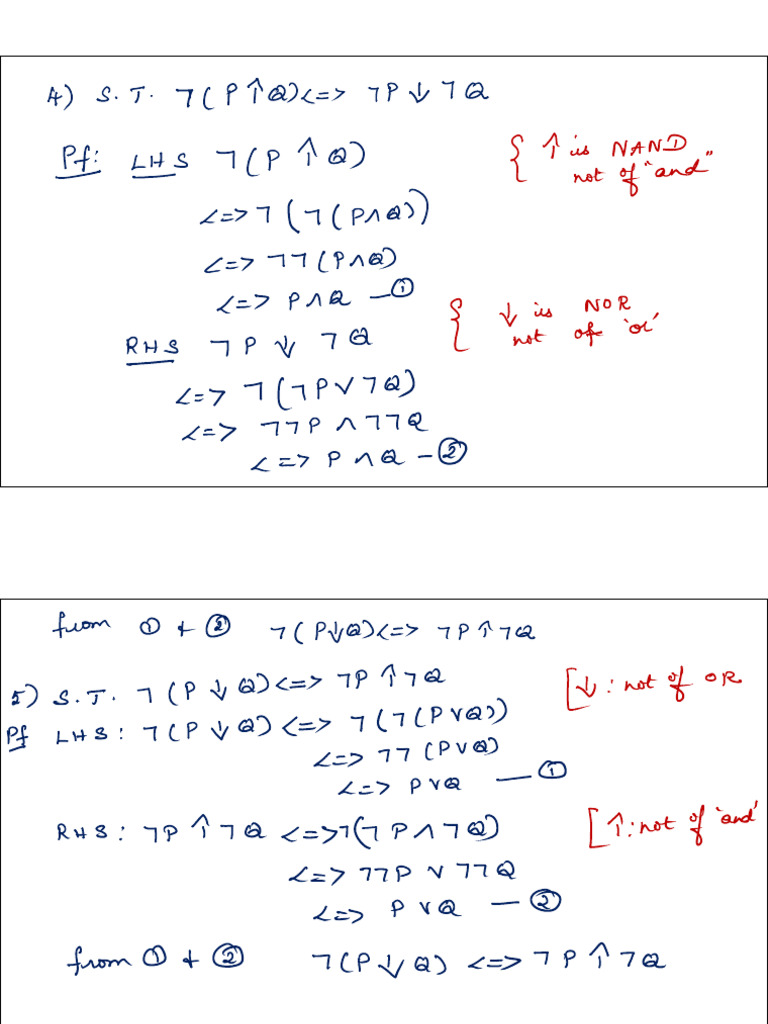 4) S.T. ¬(P↑Q)<=> ¬P↓¬Q
Pf: LHS ¬(P↑Q)
{ ↑ is NAND
not of "and"
<=> ¬(¬(P∧Q))
<=> ¬¬(P∧Q)
<=> P∧Q —①
{ ↓ is NOR
not of 'or'
RHS ¬P ↓ ¬Q
<=> ¬(¬P∨¬Q)
<=> ¬¬P ∧ ¬¬Q
<=> P∧Q —②
from ① & ② ¬(P↓Q)<=> ¬P↑¬Q
5) S.T. ¬(P↓Q)<=> ¬P↑¬Q
[↓: not of OR
Pf LHS: ¬(P↓Q) <=> ¬(¬(P∨Q))
<=> ¬¬(P∨Q)
<=> P∨Q —①
RHS: ¬P↑¬Q <=>¬(¬P∧¬Q)
[↑: not of 'and'
<=> ¬¬P ∨ ¬¬Q
<=> P∨Q —②
from ① & ② ¬(P↓Q) <=> ¬P↑¬Q